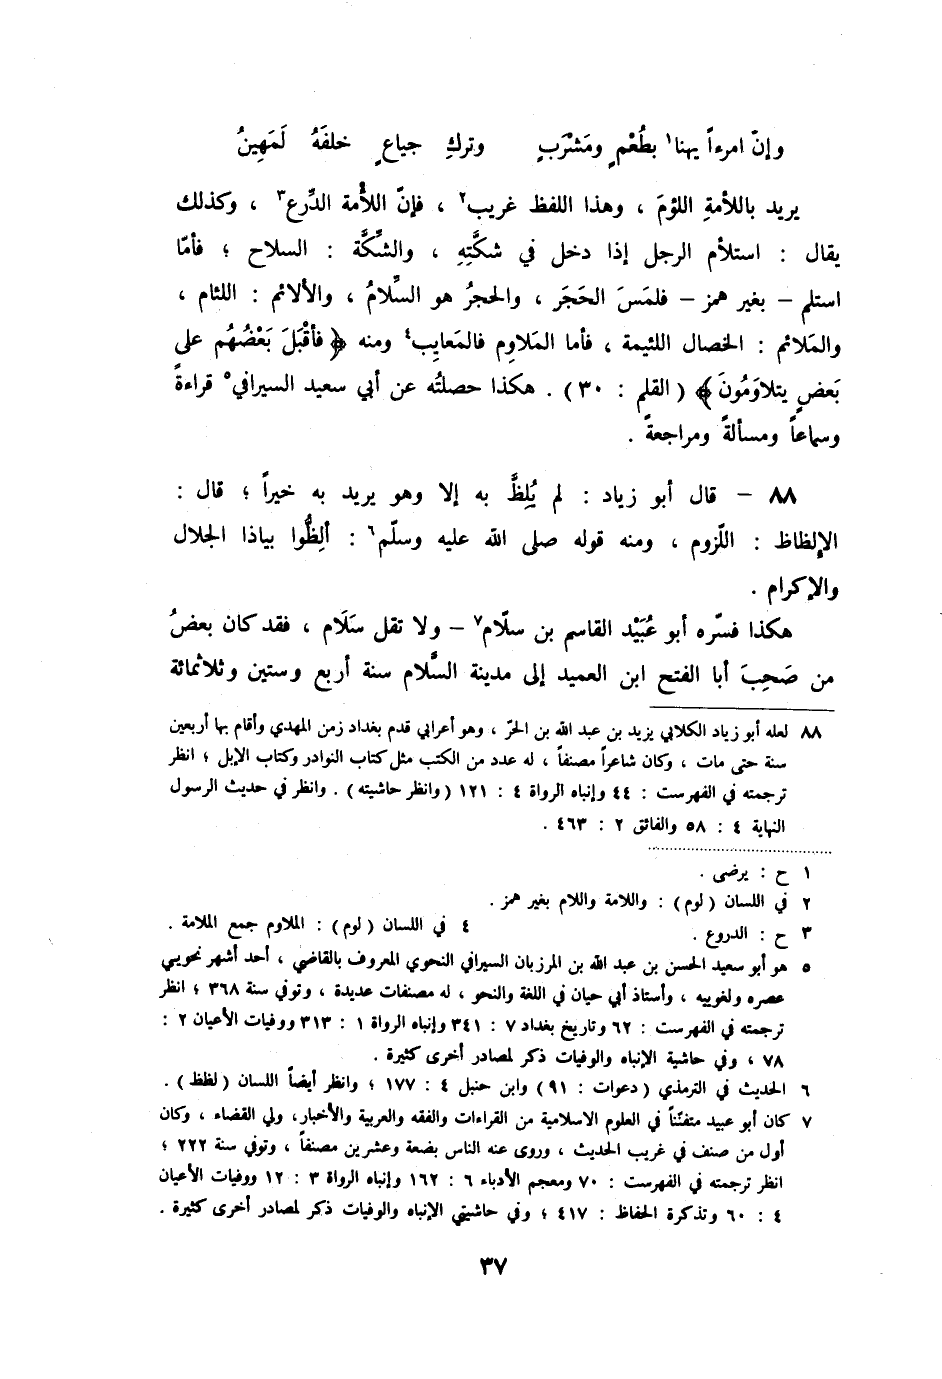 وإنّ امرءاً يهنا١ بطُعْمٍ ومَشْرَبٍ وتركِ جياعٍ خلفَهُ لَمَهِينُ
يريد باللأمةِ اللؤمَ ، وهذا اللفظ غريب٢ ، فإنّ اللأُمة الدِّرع٣ ، وكذلك
يقال : استلأم الرجل إذا دخل في شكَّتِهِ ، والشِّكَّة : السلاح ؛ فأمّا
استلم – بغير همز – فلمَسَ الحَجَر ، والحجرُ هو السِّلامُ ، والألائم : اللئام ،
والمَلائم : الخصال اللئيمة ، فأما المَلاوِم فالمَعايِب٤ ومنه ﴿ فأقْبَلَ بَعْضُهُم على
بَعضٍ يتلاوَمُونَ ﴾ ( القلم : ٣٠ ) . هكذا حصلتُه عن أبي سعيد السيرافي٥ قراءةً
وسماعاً ومسألةً ومراجعةً .
٨٨ – قال أبو زياد : لم يُلِظَّ به إلا وهو يريد به خيراً ؛ قال :
الإلظاظ : اللّزوم ، ومنه قوله صلى الله عليه وسلّم٦ : ألِظُّوا بياذا الجلال
والإكرام .
هكذا فسّره أبو عُبَيْد القاسم بن سلّام٧ – ولا تقل سَلَام ، فقد كان بعضُ
من صَحِبَ أبا الفتح ابن العميد إلى مدينة السَّلام سنة أربع وستين وثلاثمائة
٨٨ لعله أبو زياد الكلابي يزيد بن عبد الله بن الحرّ ، وهو أعرابي قدم بغداد زمن المهدي وأقام بها أربعين
سنة حتى مات ، وكان شاعراً مصنفاً ، له عدد من الكتب مثل كتاب النوادر وكتاب الإبل ؛ انظر
ترجمته في الفهرست : ٤٤ وإنباه الرواة ٤ : ١٢١ ( وانظر حاشيته ) . وانظر في حديث الرسول
النهاية ٤ : ٥٨ والفائق ٢ : ٤٦٣ .
١ ح : يرضى .
٢ في اللسان ( لوم ) : واللامة واللام بغير همز .
٣ ح : الدروع . ٤ في اللسان ( لوم ) : الملاوم جمع الملامة .
٥ هو أبو سعيد الحسن بن عبد الله بن المرزبان السيرافي النحوي المعروف بالقاضي ، أحد أشهر نحويي
عصره ولغوييه ، وأستاذ أبي حيان في اللغة والنحو ، له مصنفات عديدة ، وتوفي سنة ٣٦٨ ؛ انظر
ترجمته في الفهرست : ٦٢ وتاريخ بغداد ٧ : ٣٤١ وإنباه الرواة ١ : ٣١٣ ووفيات الأعيان ٢ :
٧٨ ، وفي حاشية الإنباه والوفيات ذكر لمصادر أخرى كثيرة .
٦ الحديث في الترمذي ( دعوات : ٩١ ) وابن حنبل ٤ : ١٧٧ ؛ وانظر أيضاً اللسان ( لظظ ) .
٧ كان أبو عبيد متفنّناً في العلوم الاسلامية من القراءات والفقه والعربية والأخبار، ولي القضاء ، وكان
أول من صنف في غريب الحديث ، وروى عنه الناس بضعة وعشرين مصنفاً ، وتوفي سنة ٢٢٢ ؛
انظر ترجمته في الفهرست : ٧٠ ومعجم الأدباء ٦ : ١٦٢ وإنباه الرواة ٣ : ١٢ ووفيات الأعيان
٤ : ٦٠ وتذكرة الحفاظ : ٤١٧ ؛ وفي حاشيتي الإنباه والوفيات ذكر لمصادر أخرى كثيرة .
٣٧